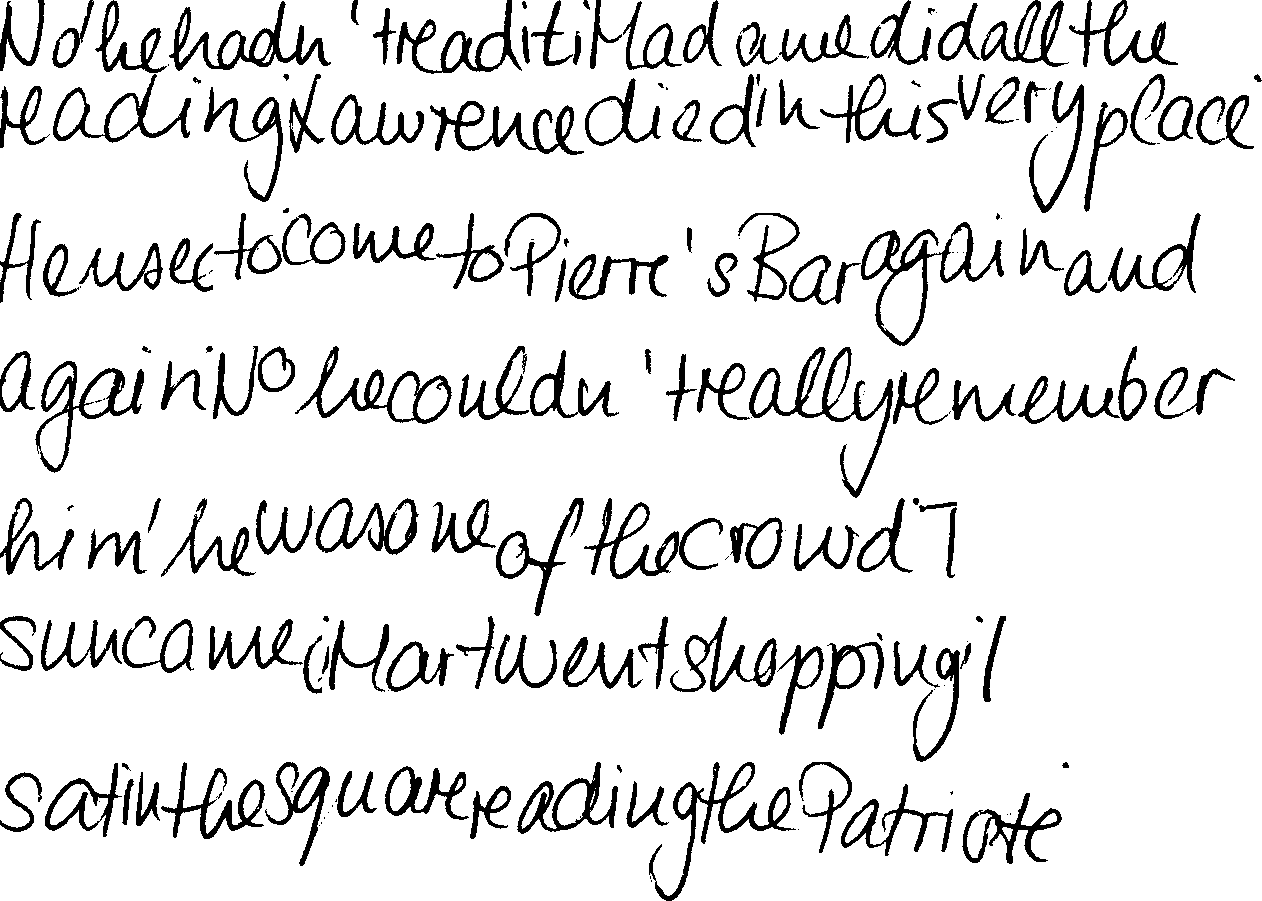 No he hadn't read it; Madame did all the
reading. Lawrence died in this very place.
He used to come to Pierre's Bar again and
again. No he couldn't really remember
him; he was one of the crowd. T
sun came; Mart went shopping; I
sat in the square reading the Patriote.